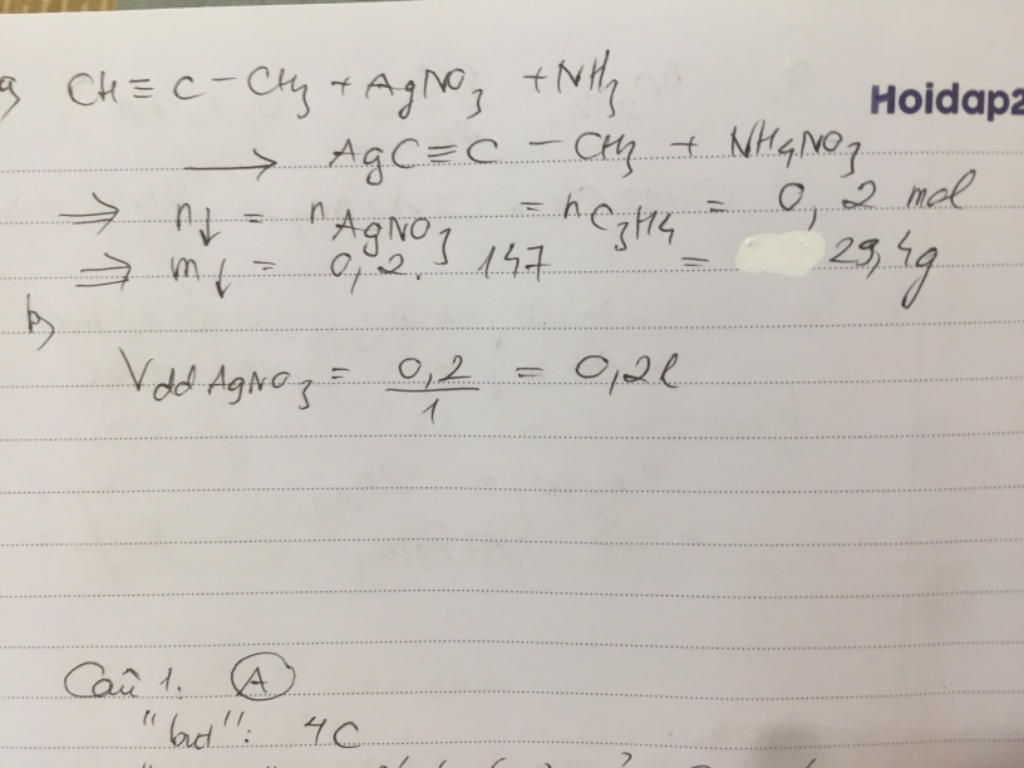 a) CH≡C-CH3 + AgNO3 + NH3
Hoidap2
→ AgC≡C-CH3 + NH4NO3
⇒ n↓ = nAgNO3 = nC3H4 = 0,2 mol
⇒ m↓ = 0,2. 147 = 29,4g
b)
Vdd AgNO3 = 0,2/1 = 0,2l
Câu 1. A
"but": 4C